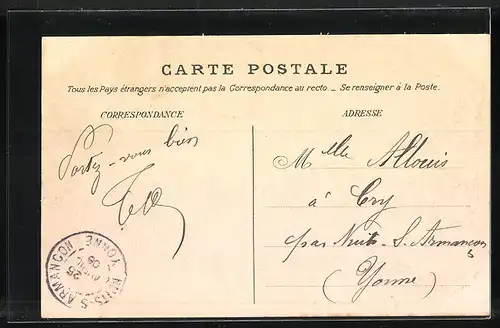 CARTE POSTALE
Tous les Pays étrangers n'acceptent pas la Correspondance au recto. _ Se renseigner à la Poste.
CORRESPONDANCE
ADRESSE
Portez-vous bien
Melle Alloeis
à Cry
par Nuits-S. Armançon
(Yonne)
NUITS-S-ARMANÇON
25
09
YONNE